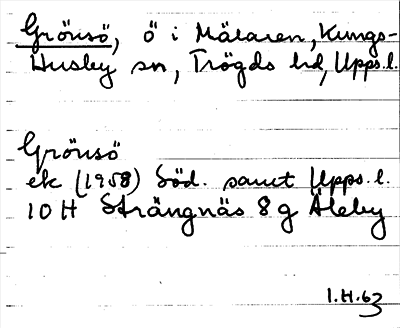 Grönsö, ö i Mälaren, Kungs-
Husby sn, Trögds hd, Upps. l.
Grönsö
ek (1958) Söd. samt Upps. l.
10 H Strängnäs 8 g Äleby
I.H.63